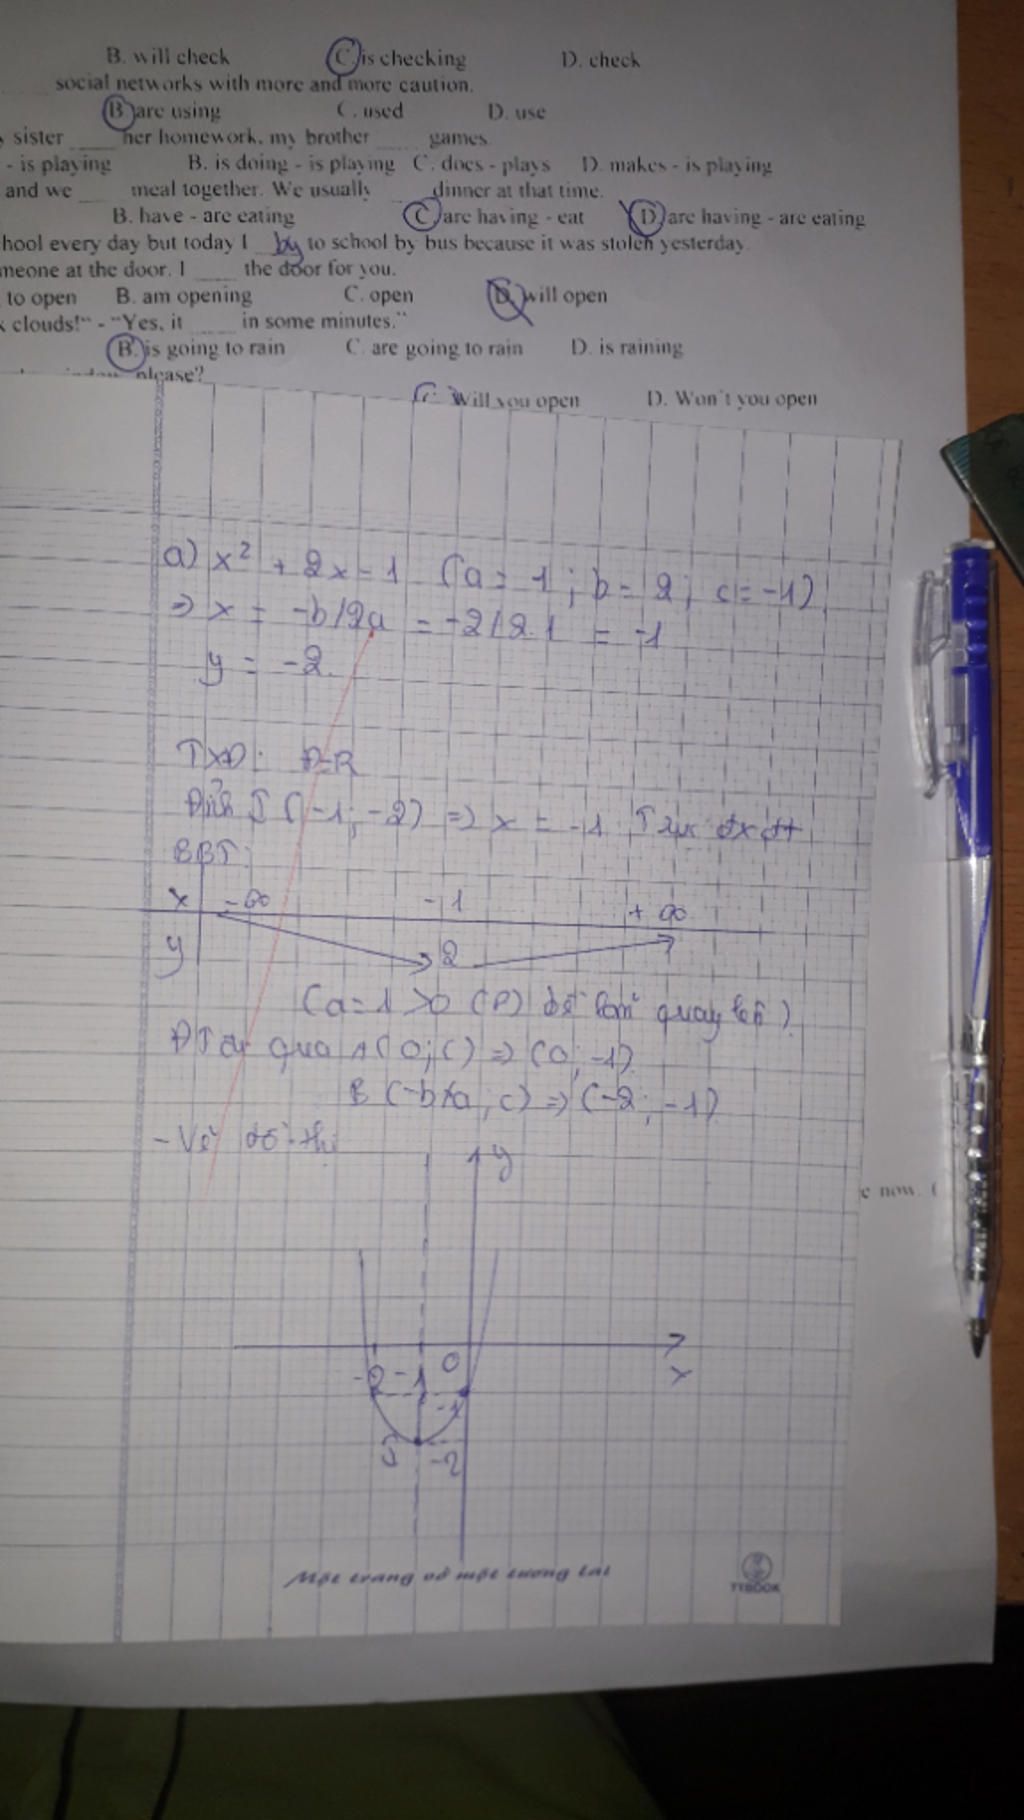 B. will check C. is checking D. check
social networks with more and more caution.
B. are using C. used D. use
sister ____ her homework, my brother ____ games.
- is playing B. is doing - is playing C. does - plays D. makes - is playing
and we ____ meal together. We usually ____ dinner at that time.
B. have - are eating C. are having - eat D. are having - are eating
hool every day but today I by to school by bus because it was stolen yesterday.
meone at the door. I ____ the door for you.
to open B. am opening C. open D. will open
k clouds!" - "Yes, it ____ in some minutes."
B. is going to rain C. are going to rain D. is raining
please?
C. Will you open D. Won't you open
a) x² + 2x - 1 (a = 1; b = 2; c = -1)
=> x = -b/2a = -2/2.1 = -1
y = -2.
TXĐ: D=R
Đỉnh I (-1; -2) => x = -1 Trục đx đt
BBT:
x -∞ -1 +∞
y 2
(a = 1 > 0 (P) bề lõm quay lên)
ĐT đi qua A (0; c) => (0; -1).
B (-b/a; c) => (-2; -1)
- Vẽ đồ thị
y
x
-2 -1 0
-1
I -2
Một trang vở một tương lai
TYBOOK
e now. (